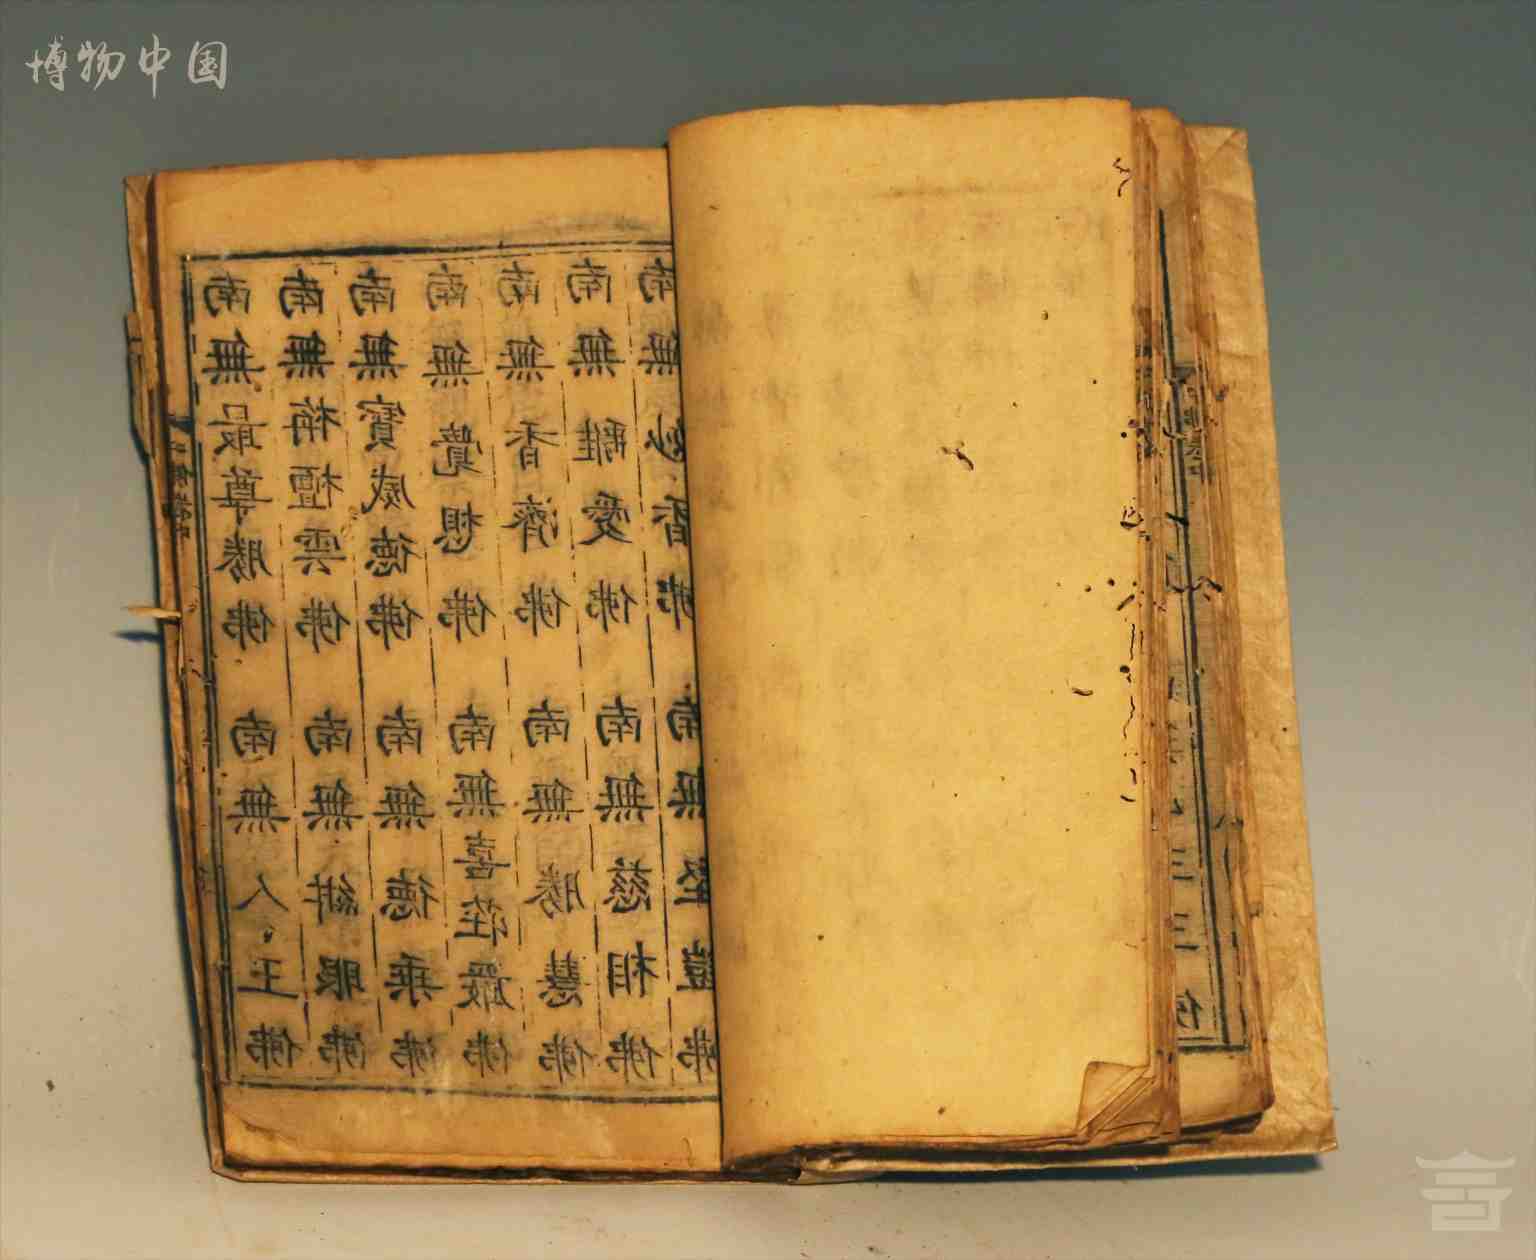 博物中国
南無最尊勝佛 南無人王佛
南無栴檀雲佛 南無紺眼佛
南無寶威德佛 南無德乘佛
南無覺想佛 南無喜莊嚴佛
南無香濟佛 南無勝慧佛
南無離愛佛 南無慈相佛
南無妙香佛 南無堅鎧佛